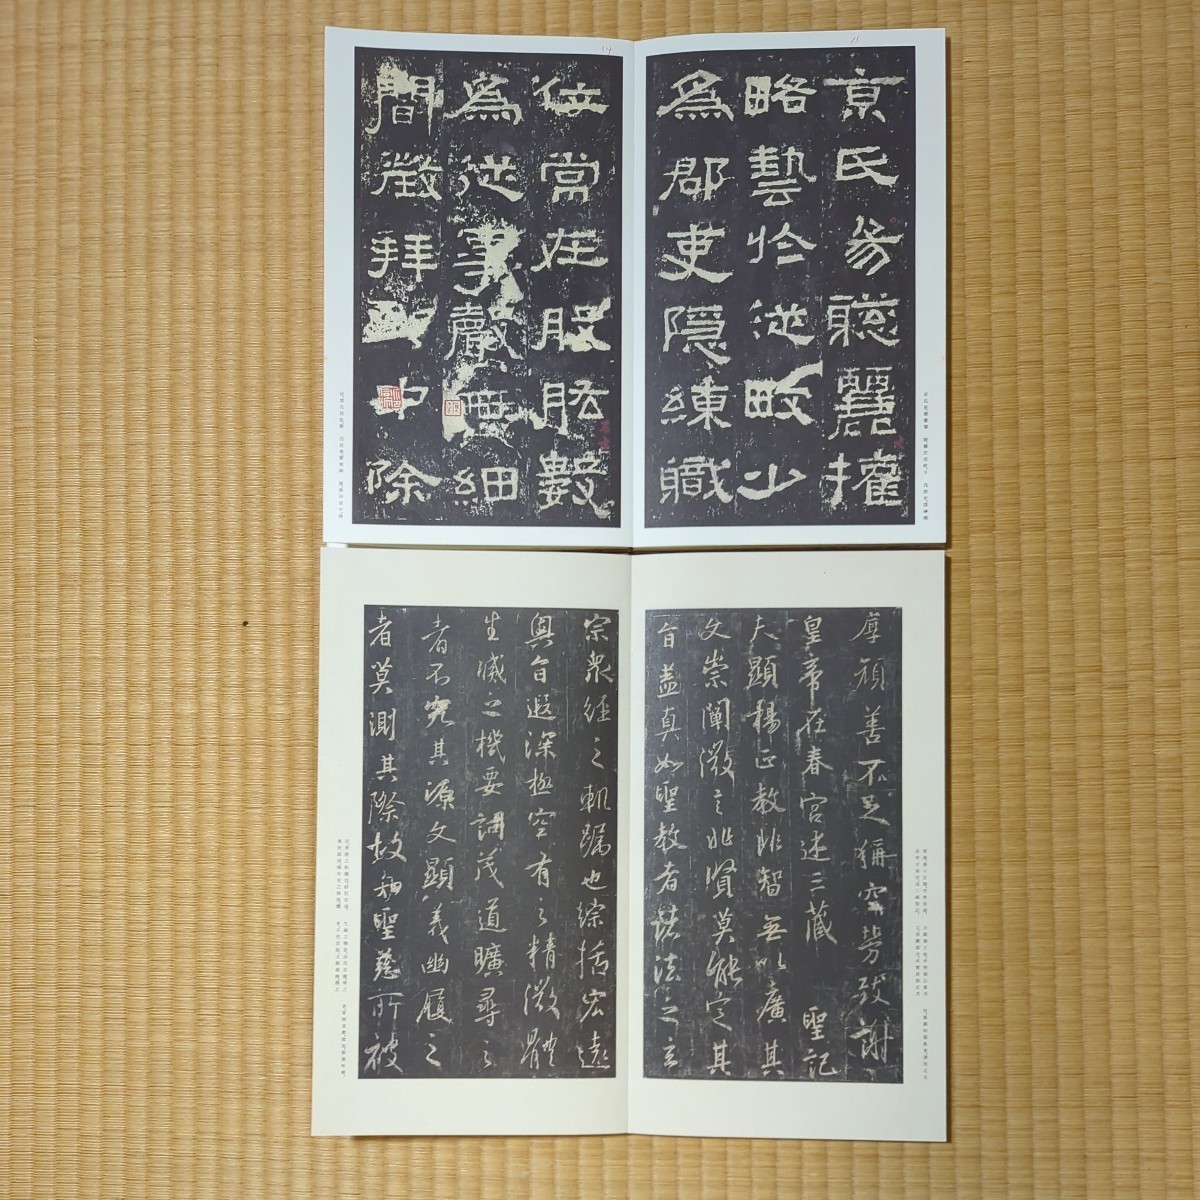 15
京氏易聰麗權
略藝於從畋少
為郡吏隱練職
14
位常在股肱數
為從事聲無細
聞徵拜郎中除
厚顏善不足稱空勞致謝
皇帝在春宮述三藏 聖記
夫顯揚正教非智無以廣其
文崇闡微言非賢莫能定其
旨蓋真如聖教者諸法之玄
宗眾經之軌躅也綜括宏遠
奧旨遐深極空有之精微體
生滅之機要詞茂道曠尋之
者不究其源文顯義幽履之
者莫測其際故知聖慈所被